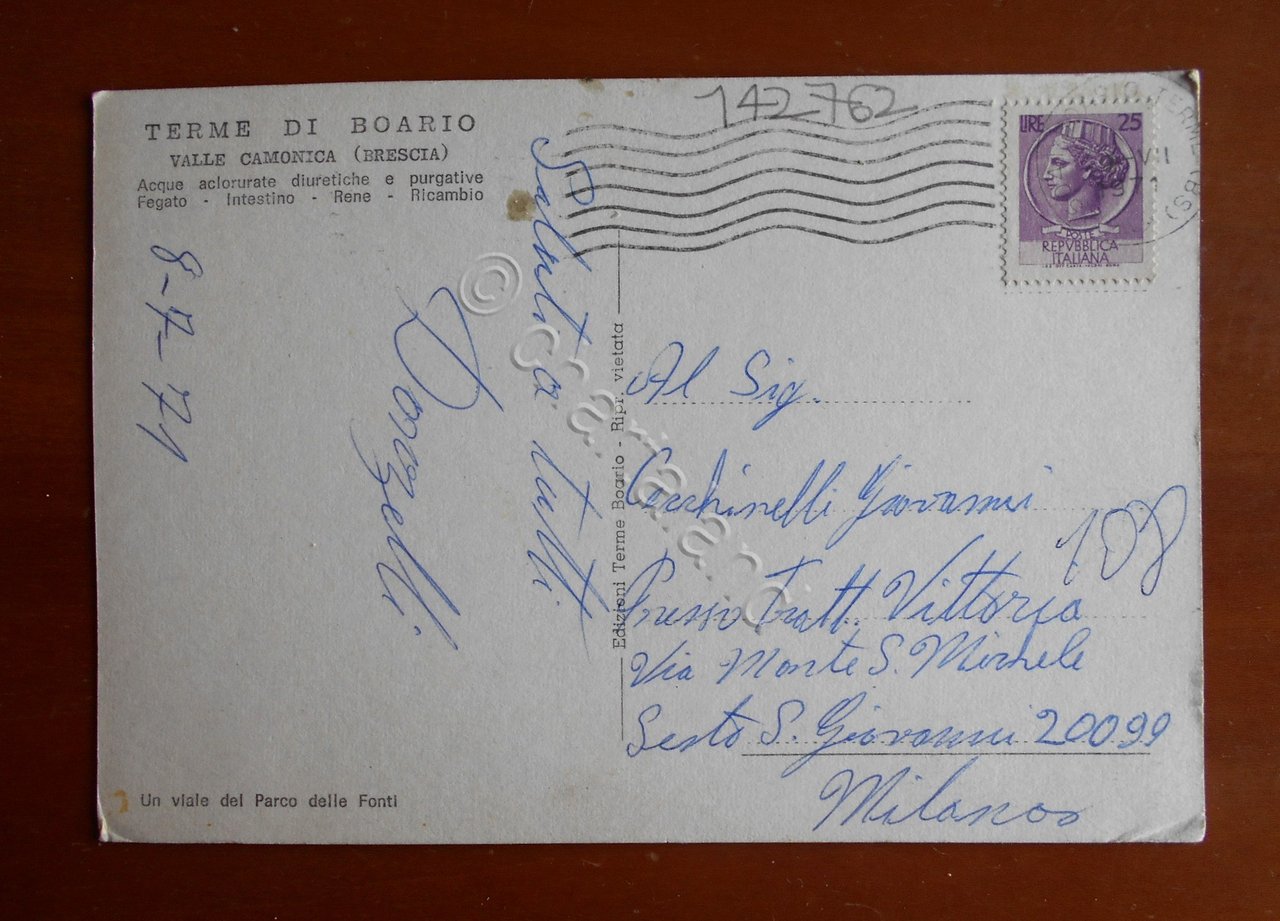 TERME DI BOARIO
VALLE CAMONICA (BRESCIA)
Acque aclorurate diuretiche e purgative
Fegato - Intestino - Rene - Ricambio
8-7-71
Saluti a tutti
Donzelli
Un viale del Parco delle Fonti
Edizioni Terme Boario - Ripr. vietata
142762
LIRE 25
POSTE
REPVBBLICA
ITALIANA
TERME (BS)
VII
Al Sig.
Cecchinelli Giovanni
108
Presso Tratt. Vittoria
Via Monte S. Michele
Sesto S. Giovanni 20099
Milano
© cartaland